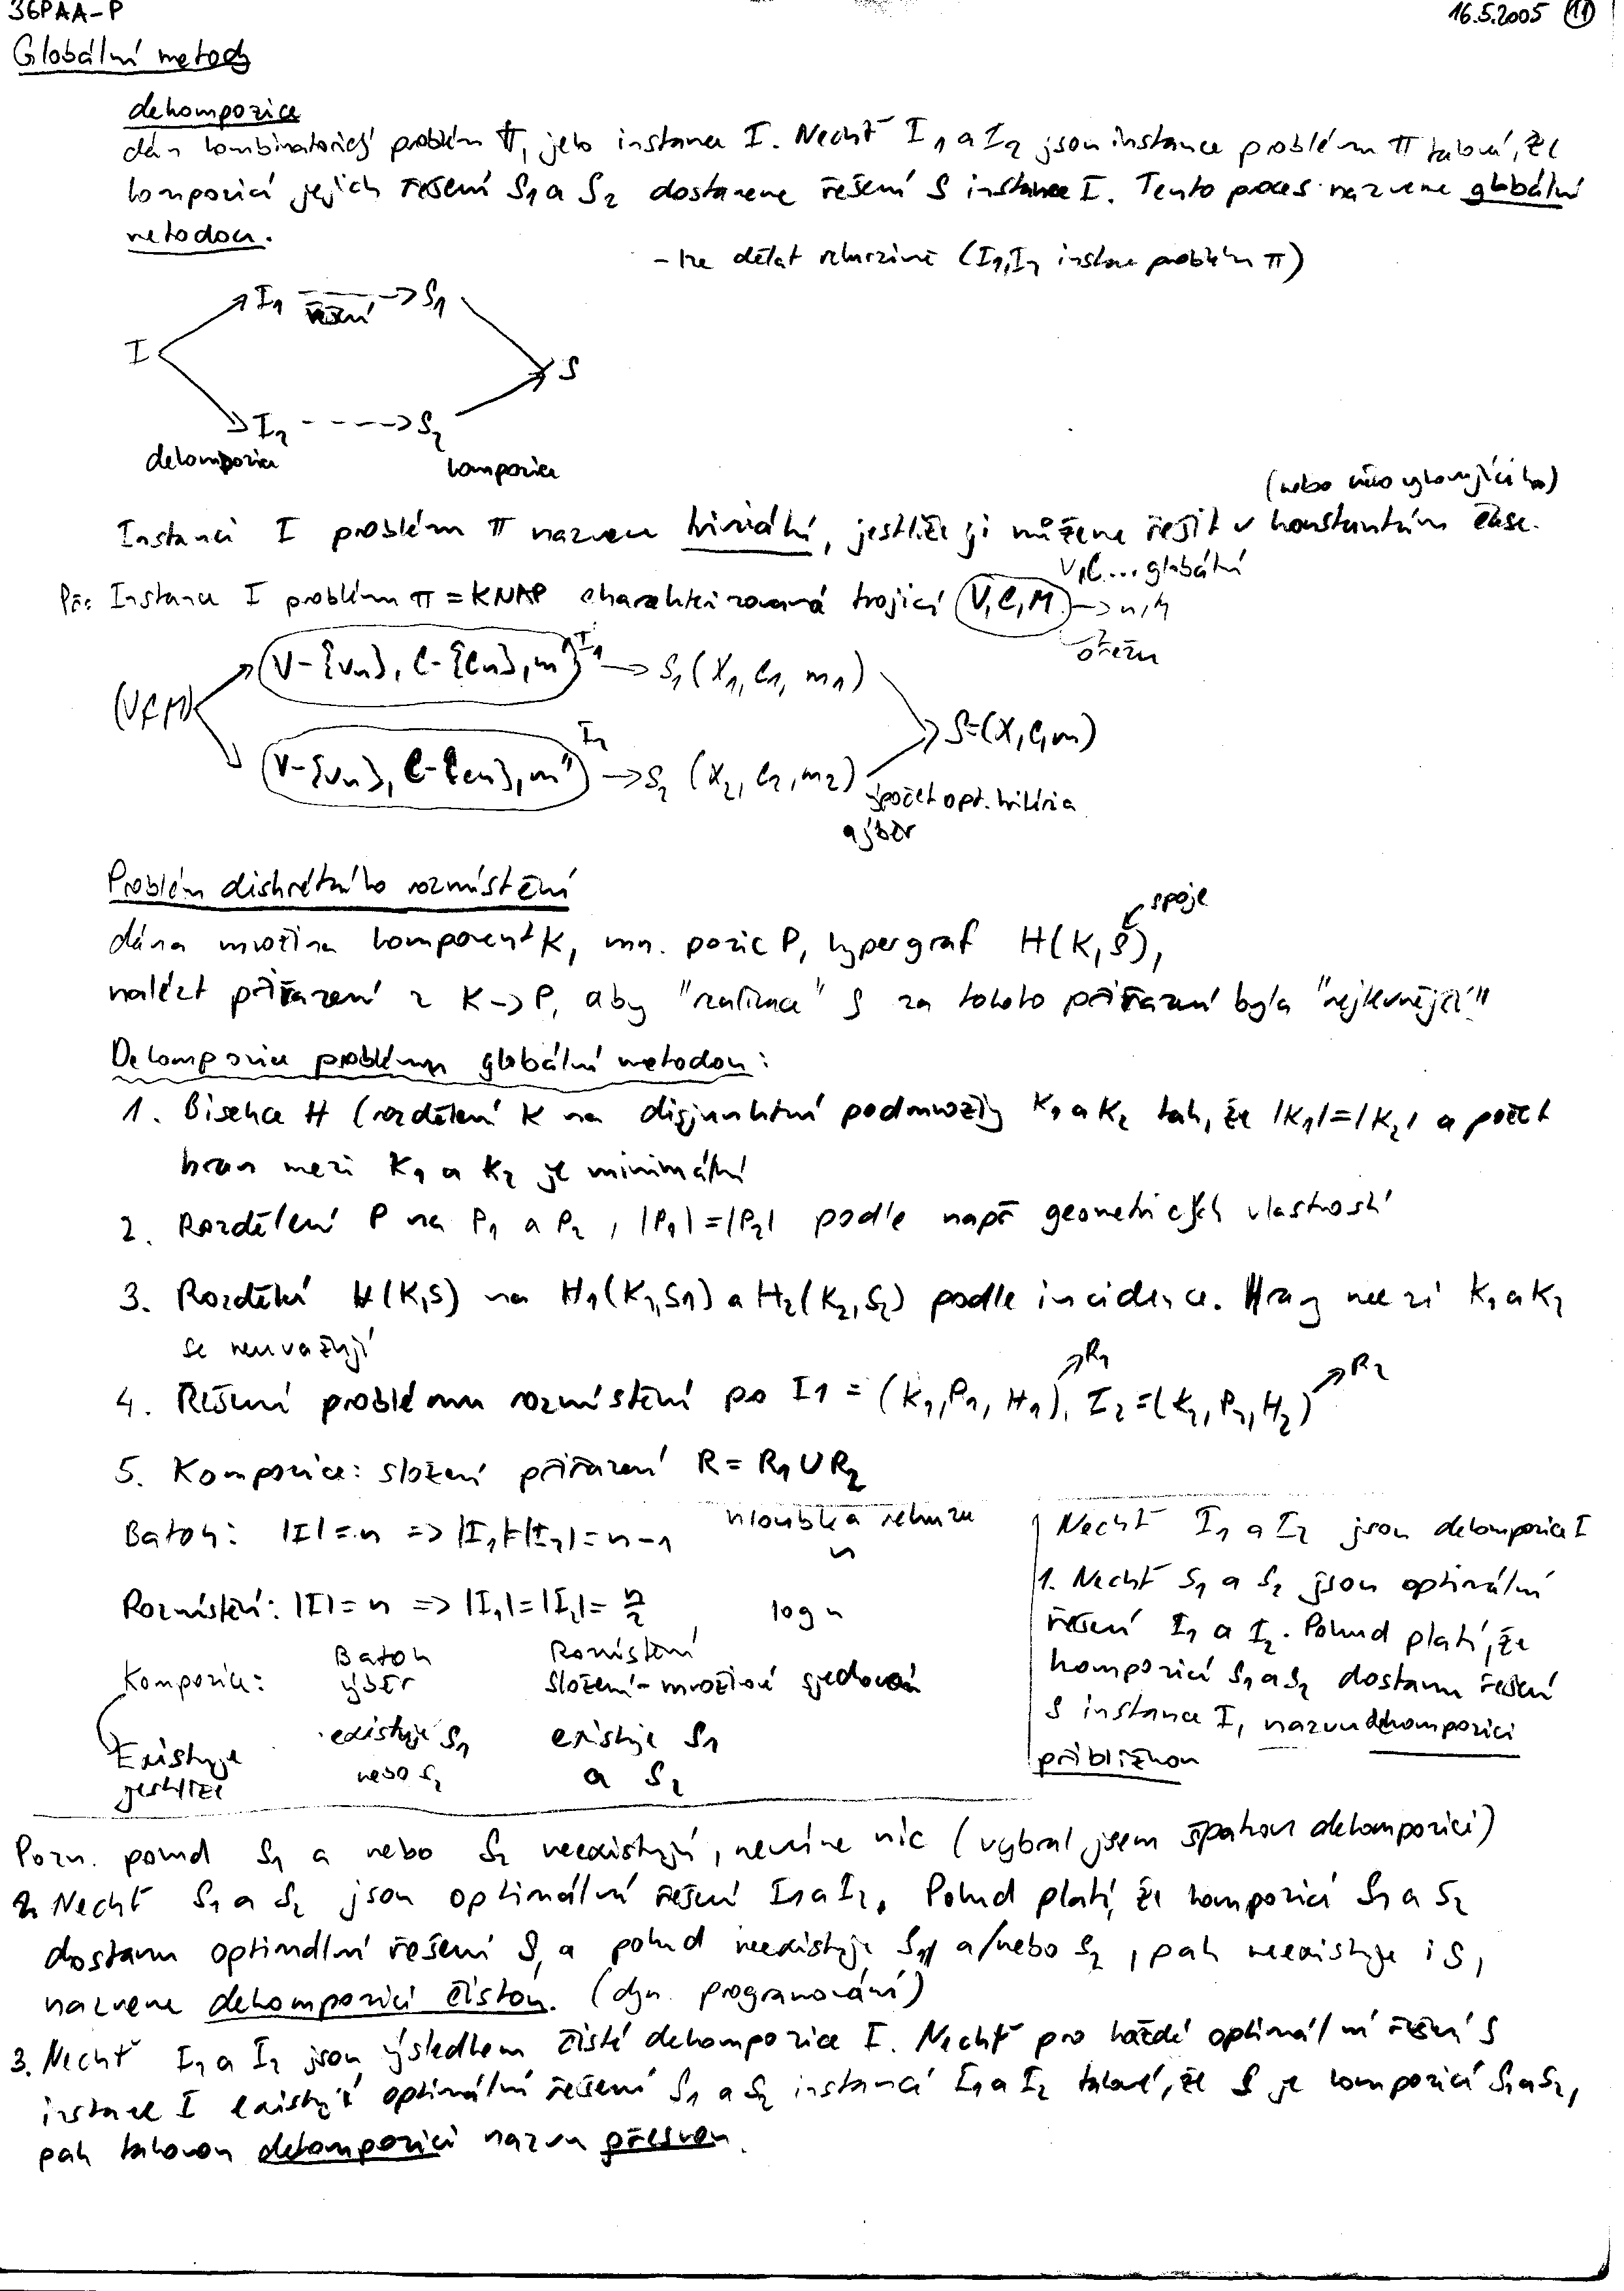 36PAA-P
16.5.2005 11
Globální metody
dekompozice
dán kombinatorický problém π, jeho instance I. Nechť I1 a I2 jsou instance problému π takové, že
kompozicí jejich řešení S1 a S2 dostaneme řešení S instance I. Tento proces nazveme globální
metodou.
- lze dělat rekurzivně (I1, I2 instance problému π)
I1 ---> S1
řešení
I
S
I2 ---> S2
dekompozice
kompozice
(nebo nám vyhovujícím)
Instanci I problému π nazveme triviální, jestliže ji můžeme řešit v konstantním čase.
V,C... globální
Př: Instance I problému π = KNAP charakterizovaná trojicí (V, C, M) → n, M
ořežu
V-{vn}, C-{cn}, m' I1 → S1 (X1, C1, m1)
(V,C,M)
S=(X,C,m)
V-{vn}, C-{cn}, m'' I2 → S2 (X2, C2, m2)
výpočet opt. kritéria
a výběr
Problém diskrétního rozmístění
spoje
dána množina komponent K, mn. pozic P, hypergraf H(K, S),
nalézt přiřazení z K → P, aby "realizace" S za tohoto přiřazení byla "nejlevnější"
Dekompozice problému globální metodou:
1. Bisekce H (rozdělení K na disjunktní podmnožiny K1 a K2 tak, že |K1|=|K2| a počet
hran mezi K1 a K2 je minimální
2. Rozdělení P na P1 a P2, |P1|=|P2| podle např geometrických vlastností
3. Rozdělení H(K,S) na H1(K1,S1) a H2(K2,S2) podle incidence. Hrany mezi K1 a K2
se neuvažují
4. Řešení problému rozmístění po I1 = (K1, P1, H1) → R1, I2 = (K2, P2, H2) → R2
5. Kompozice: složení přiřazení R = R1 ∪ R2
hloubka rekurze
Batoh: |I| = n => |I1|=|I2| = n-1 n
Rozmístění: |I| = n => |I1|=|I2| = n/2 log n
Batoh Rozmístění
Kompozice: výběr složení - množinové sjednocení
Existuje existuje S1 existuje S1
jestliže nebo S2 a S2
Nechť I1 a I2 jsou dekompozice I
1. Nechť S1 a S2 jsou optimální
řešení I1 a I2. Pokud platí, že
kompozicí S1 a S2 dostanu řešení
S instance I, nazvu dekompozici
přibližnou
Pozn. pokud S1 a nebo S2 neexistují, nevíme nic (vybral jsem špatnou dekompozici)
2. Nechť S1 a S2 jsou optimální řešení I1 a I2. Pokud platí, že kompozicí S1 a S2
dostanu optimální řešení S, a pokud neexistuje S1 a/nebo S2, pak neexistuje i S,
nazveme dekompozici čistou. (dyn. programování)
3. Nechť I1 a I2 jsou výsledkem čisté dekompozice I. Nechť pro každé optimální řešení S
instance I existují optimální řešení S1 a S2 instancí I1 a I2 takové, že S je kompozicí S1 a S2,
pak takovou dekompozici nazvu přesnou.